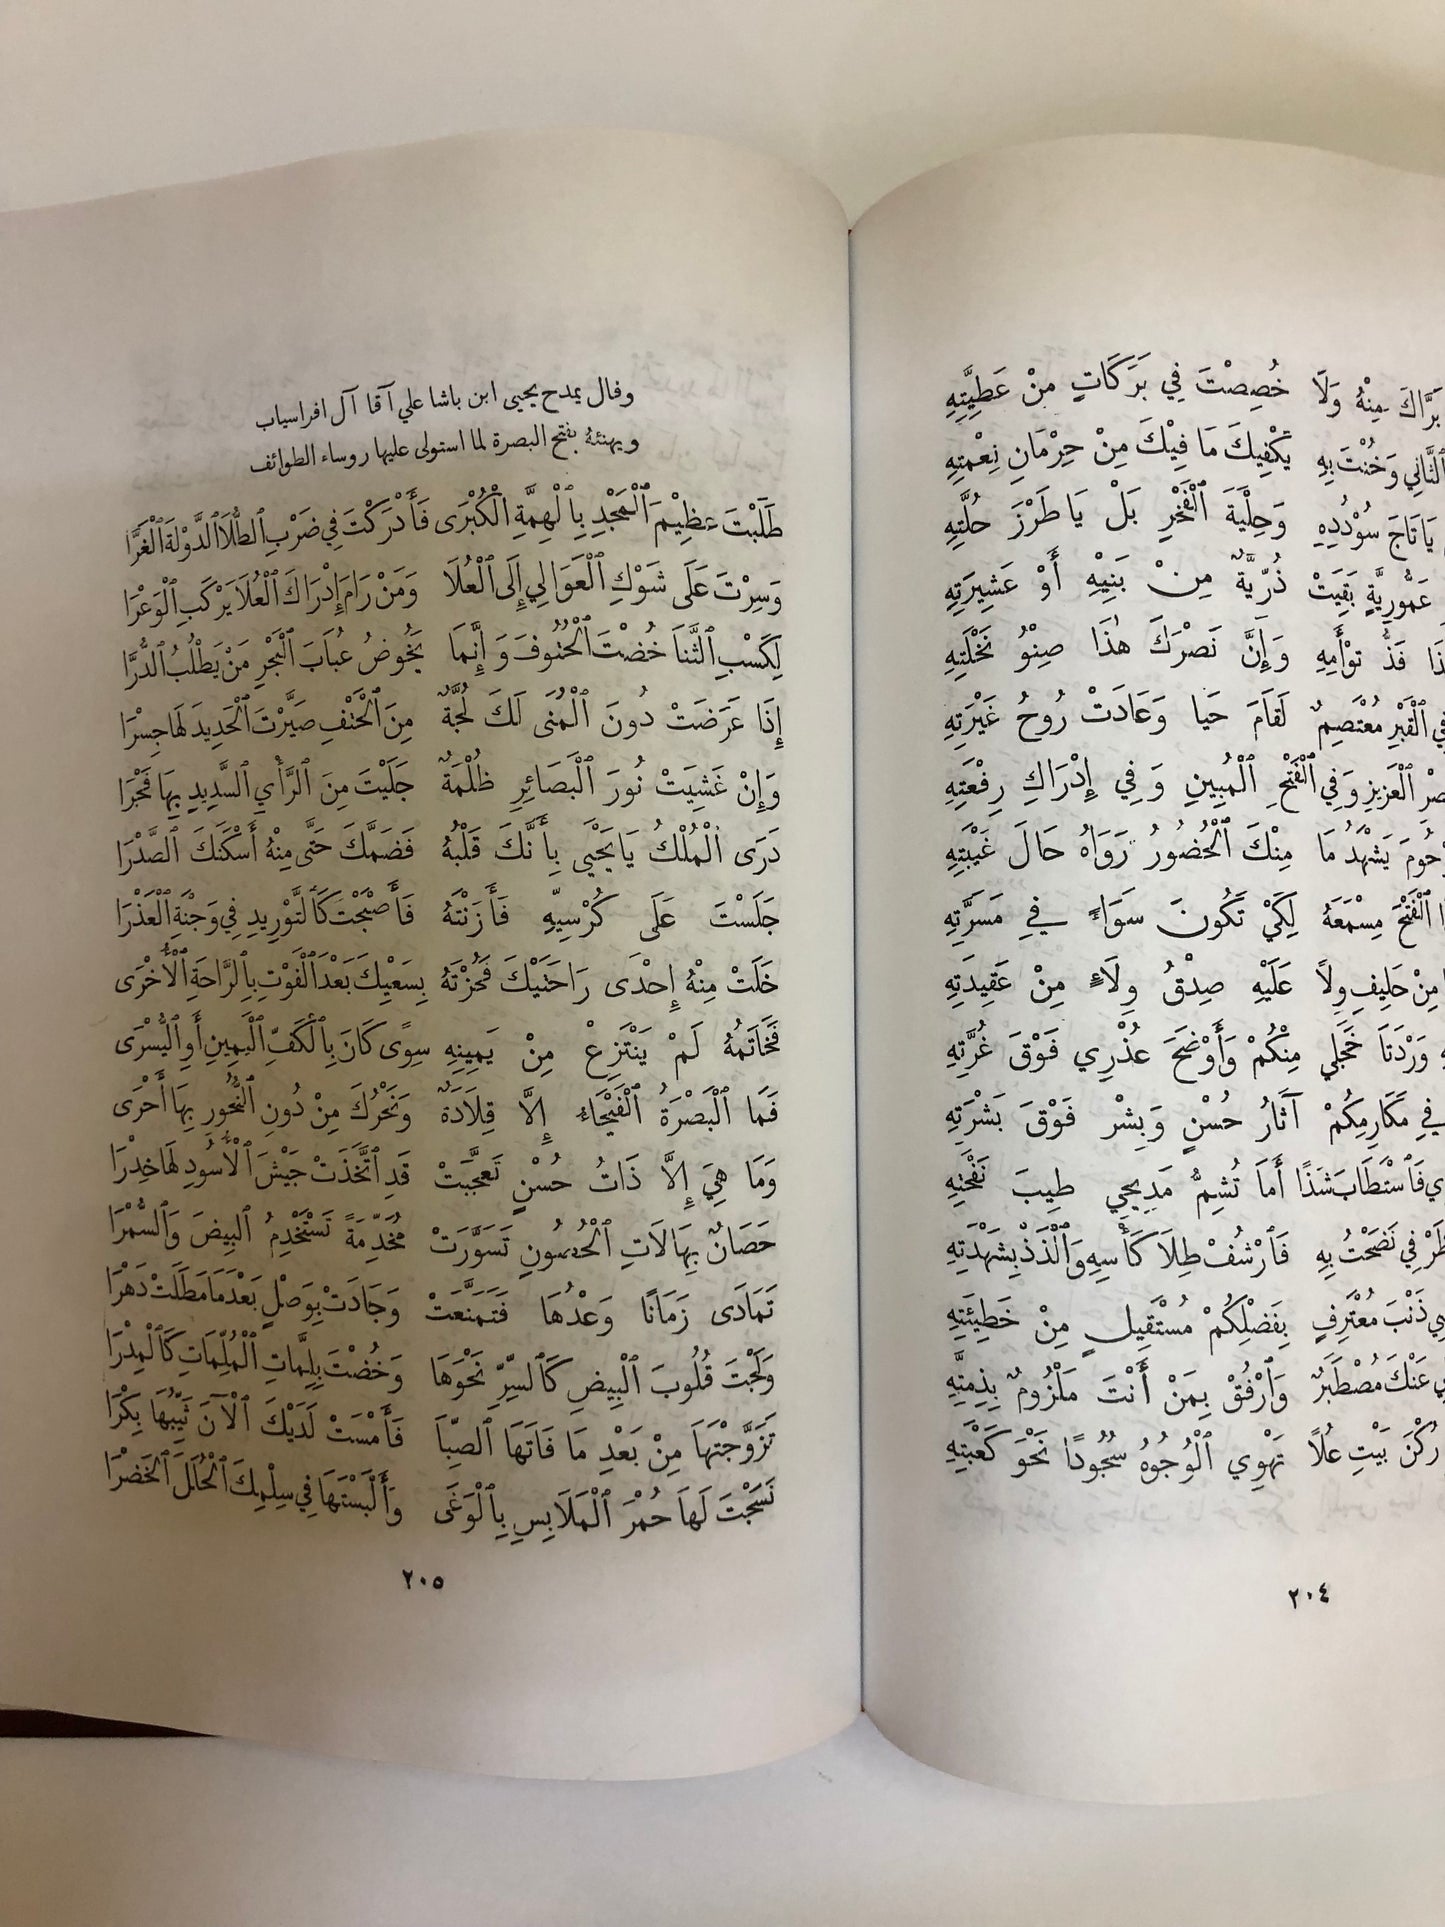 بَرَّاكَ مِنْهُ وَلَا خُصِصْتَ فِي بَرَكَاتٍ مِنْ عَطِيَّتِهِ
الثَّانِي وَخُنْتَ بِهِ يَكْفِيكَ مَا فِيْكَ مِنْ حِرْمَانِ نِعْمَتِهِ
يَا تَاجَ سُوْدُدِهِ وَحِلْيَةَ ٱلْفَخْرِ بَلْ يَا طَرْزَ حُلَّتِهِ
عَمُّورِيَّةٍ بَقِيَتْ ذُرِّيَّةٌ مِنْ بَنِيْهِ أَوْ عَشِيرَتِهِ
فَذُّ تَوْأَمِهِ وَإِنَّ نَصْرَكَ هٰذَا صِنْوُ نَخْلَتِهِ
ٱلْقَبْرِ مُعْتَصِمٌ لَقَامَ حَيا وَعَادَتْ رُوحُ غَيْرَتِهِ
ٱلْعَزِيزِ وَفِي ٱلْفَتْحِ ٱلْمُبِينِ وَفِي إِدْرَاكِ رِفْعَتِهِ
يَشْهَدُ مَا مِنْكَ ٱلْحُضُورُ رَوَاهُ حَالَ غَيْبَتِهِ
ٱلْفَتْحَ مِسْمَعَهُ لِكَيْ تَكُونَ سَوَاءً فِي مَسَرَّتِهِ
مِنْ حَلِيفِ وِلاً عَلَيْهِ صِدْقُ وِلَاءٍ مِنْ عَقِيدَتِهِ
وَرْدَتَا خَجَلِي مِنْكُمْ وَأَوْضَحَ عُذْرِي فَوْقَ غُرَّتِهِ
فِي مَكَارِمِكُمْ آثَارُ حُسْنٍ وَبِشْر فَوْقَ بَشْرَتِهِ
فَٱسْتَطَابَ شَذًا أَمَا تُشِمُّ مَدِيحِي طِيبَ نَفْحَتِهِ
فِي نَضَحْتُ بِهِ فَٱرْشُفْ طِلَا كَأْسِهِ وَٱلْذَذْ بِشَهْدَتِهِ
ذَنْبَ مُعْتَرِفٍ بِفَضْلِكُمْ مُسْتَقِيلٍ مِنْ خَطِيئَتِهِ
عَنْكَ مُصْطَبَرٌ وَٱرْفُقْ بِمَنْ أَنْتَ مَلْزُومٌ بِذِمَتِهِ
رُكْنَ بَيْتِ عُلًا تَهْوِي ٱلْوُجُوهُ سُجُودًا نَحْوَ كَعْبَتِهِ
٢٠٤
وقال يمدح يحيى ابن باشا علي آقا آل افراسياب
ويهنئهُ بفتح البصرة لما استولى عليها روساء الطوائف
طَلَبْتَ عَظِيْمَ ٱلْمَجْدِ بِٱلْهِمَّةِ ٱلْكُبْرَى فَأَدْرَكْتَ فِي ضَرْبِ ٱلطُّلَا ٱلدَّوْلَةَ ٱلْغَرَّا
وَسِرْتَ عَلَى شَوْكِ ٱلْعَوَالِي إِلَى ٱلْعُلَا وَمَنْ رَامَ إِدْرَاكَ ٱلْعُلَا يَرْكَبِ ٱلْوَعْرَا
لِكَسْبِ ٱلثَّنَا خُضْتَ ٱلْحُتُوفَ وَإِنَّمَا يَخُوضُ عُبَابَ ٱلْبَحْرِ مَنْ يَطْلُبُ ٱلدُّرَّا
إِذَا عَرَضَتْ دُونَ ٱلْمُنَى لَكَ لُجَّةٌ مِنَ ٱلْحَتْفِ صَيَّرْتَ ٱلْحَدِيدَ لَهَا جِسْرَا
وَإِنْ غَشِيَتْ نُورَ ٱلْبَصَائِرِ ظُلْمَةٌ جَلَيْتَ مِنَ ٱلرَّأْيِ ٱلسَّدِيدِ بِهَا فَجْرَا
دَرَى ٱلْمُلْكُ يَا يَحْيَى بِأَنَّكَ قَلْبُهُ فَضَمَّكَ حَتَّى مِنْهُ أَسْكَنَكَ ٱلصَّدْرَا
جَلَسْتَ عَلَى كُرْسِيِّهِ فَأَزَنْتَهُ فَأَصْبَحْتَ كَٱلتَّوْرِيدِ فِي وَجْنَةِ ٱلْعَذْرَا
خَلَتْ مِنْهُ إِحْدَى رَاحَتَيْكَ فَحُزْتَهُ بِسَعْيِكَ بَعْدَ ٱلْفَوْتِ بِٱلرَّاحَةِ ٱلْأُخْرَى
فَخَاتَمُهُ لَمْ يَنْتَزِعْ مِنْ يَمِينِهِ سِوًى كَانَ بِٱلْكَفِّ ٱلْيَمِينِ أَوِ ٱلْيُسْرَى
فَمَا ٱلْبَصْرَةُ ٱلْفَيْحَاءُ إِلَّا قِلَادَةٌ وَنَحْرُكَ مِنْ دُونِ ٱلنُّحُورِ بِهَا أَحْرَى
وَمَا هِيَ إِلَّا ذَاتُ حُسْنٍ تَعَجَّبَتْ قَدِ ٱتَّخَذَتْ جَيْشَ ٱلْأُسُودِ لَهَا خِدْرَا
حَصَانٌ بِهَالَاتِ ٱلْحُصُونِ تَسَوَّرَتْ مُخَدَّمَةً تَسْتَخْدِمُ ٱلبِيضَ وَٱلسُّمْرَا
تَمَادَى زَمَانًا وَعْدُهَا فَتَمَنَّعَتْ وَجَادَتْ بِوَصْلٍ بَعْدَمَا مَطَلَتْ دَهْرَا
وَلَجْتَ قُلُوبَ ٱلْبِيضِ كَٱلسِّرِّ نَحْوَهَا وَخُضْتَ بِلِمَّاتِ ٱلْمُلِمَّاتِ كَٱلْمِدْرَا
تَزَوَّجْتَهَا مِنْ بَعْدِ مَا فَاتَهَا ٱلصِّبَا فَأَمْسَتْ لَدَيْكَ ٱلْآنَ ثَيِّبُهَا بِكْرَا
نَسَجْتَ لَهَا حُمْرَ ٱلْمَلَابِسِ بِٱلْوَغَى وَأَلْبَسْتَهَا فِي سِلْمِكَ ٱلْحُلَلَ ٱلْخَضْرَا
٢٠٥